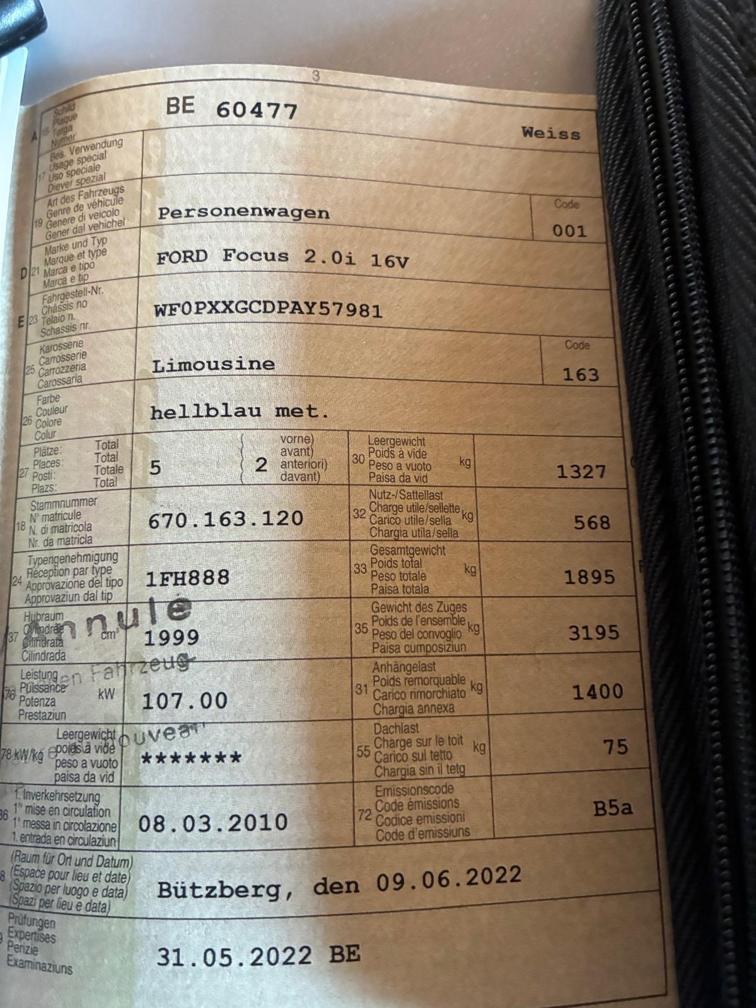 3
A
Schild
Plaque
Targa
Numer
BE 60477
Weiss
17
Bes. Verwendung
Usage spécial
Uso speciale
Diever spezial
19
Art des Fahrzeugs
Genre de véhicule
Genere di veicolo
Gener dal vehichel
Personenwagen
Code
001
D 21
Marke und Typ
Marque et type
Marca e tipo
Marca e tip
FORD Focus 2.0i 16V
E 23
Fahrgestell-Nr.
Châssis no
Telaio n.
Schassis nr.
WF0PXXGCDPAY57981
25
Karosserie
Carrosserie
Carrozzeria
Carossaria
Limousine
Code
163
26
Farbe
Couleur
Colore
Colur
hellblau met.
27
Plätze: Total
Places: Total
Posti: Totale
Plazs: Total
5
2
vorne)
avant)
anteriori)
davant)
30
Leergewicht
Poids à vide
Peso a vuoto
Paisa da vid
kg
1327
18
Stammnummer
N° matricule
N. di matricola
Nr. da matricla
670.163.120
32
Nutz-/Sattellast
Charge utile/sellette
Carico utile/sella
Chargia utila/sella
kg
568
24
Typengenehmigung
Réception par type
Approvazione del tipo
Approvaziun dal tip
1FH888
33
Gesamtgewicht
Poids total
Peso totale
Paisa totala
kg
1895
Annulé
37
Hubraum
Cylindrée
Cilindrata
Cilindrada
cm³
1999
35
Gewicht des Zuges
Poids de l'ensemble
Peso del convoglio
Paisa cumposiziun
kg
3195
en Fahrzeug
76
Leistung
Puissance
Potenza
Prestaziun
kW
107.00
31
Anhängelast
Poids remorquable
Carico rimorchiato
Chargia annexa
kg
1400
78 kW/kg
Leergewicht
poids à vide
peso a vuoto
paisa da vid
*******
55
Dachlast
Charge sur le toit
Carico sul tetto
Chargia sin il tetg
kg
75
36
1. Inverkehrsetzung
1re mise en circulation
1a messa in circolazione
1. entrada en circulaziun
08.03.2010
72
Emissionscode
Code émissions
Codice emissioni
Code d'emissiuns
B5a
8
(Raum für Ort und Datum)
(Espace pour lieu et date)
(Spazio per luogo e data)
(Spazi per lieu e data)
Bützberg, den 09.06.2022
Prüfungen
Expertises
Perizie
Examinaziuns
31.05.2022 BE